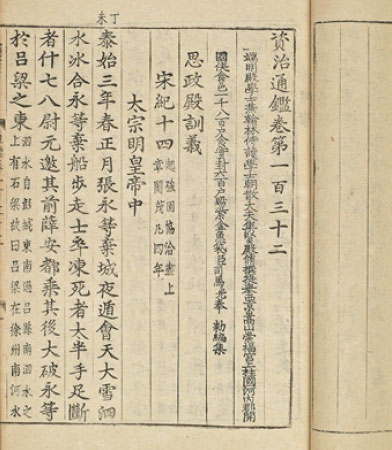 資治通鑑卷第一百三十二
端明殿學士兼翰林侍讀學士朝散大夫集賢殿脩撰提擧西京嵩山崇福宮上柱國河內郡開
國侯食邑一千八百戶食實封六百戶賜紫金魚袋臣司馬光奉 勑編集
思政殿訓義
宋紀十四 起強圉協洽盡上
章閹茂凡四年
太宗明皇帝中
丁未
泰始三年春正月張永等棄城夜遁會天大雪泗
水冰合永等棄船步走士卒凍死者太半手足斷
者什七八尉元邀其前薛安都乘其後大破永等
於呂梁之東 泗水自彭城東南過呂縣南泗水之
上有石梁故曰呂梁在徐州南河水